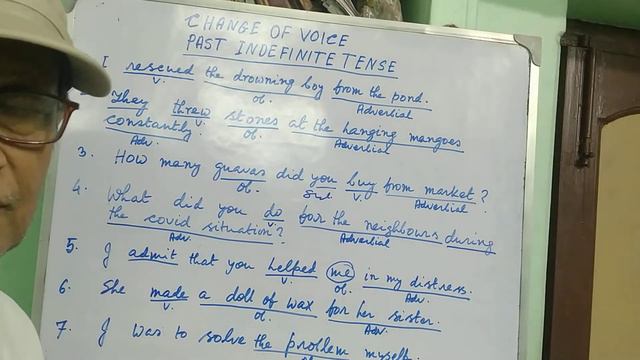 CHANGE OF VOICE
PAST INDEFINITE TENSE
I rescued the drowning boy from the pond.
V. ob. Adverbial
They threw stones at the hanging mangoes
V. ob. Adverbial
constantly.
Adv.
3. How many guavas did you buy from market?
ob. Sub V. Adverbial
4. What did you do for the neighbours during
V. Adverbial
the covid situation?
Adv.
5. I admit that you helped me in my distress.
V. ob. Adv.
6. She made a doll of wax for her sister.
V. ob. Adv.
7. I was to solve the problem myself.